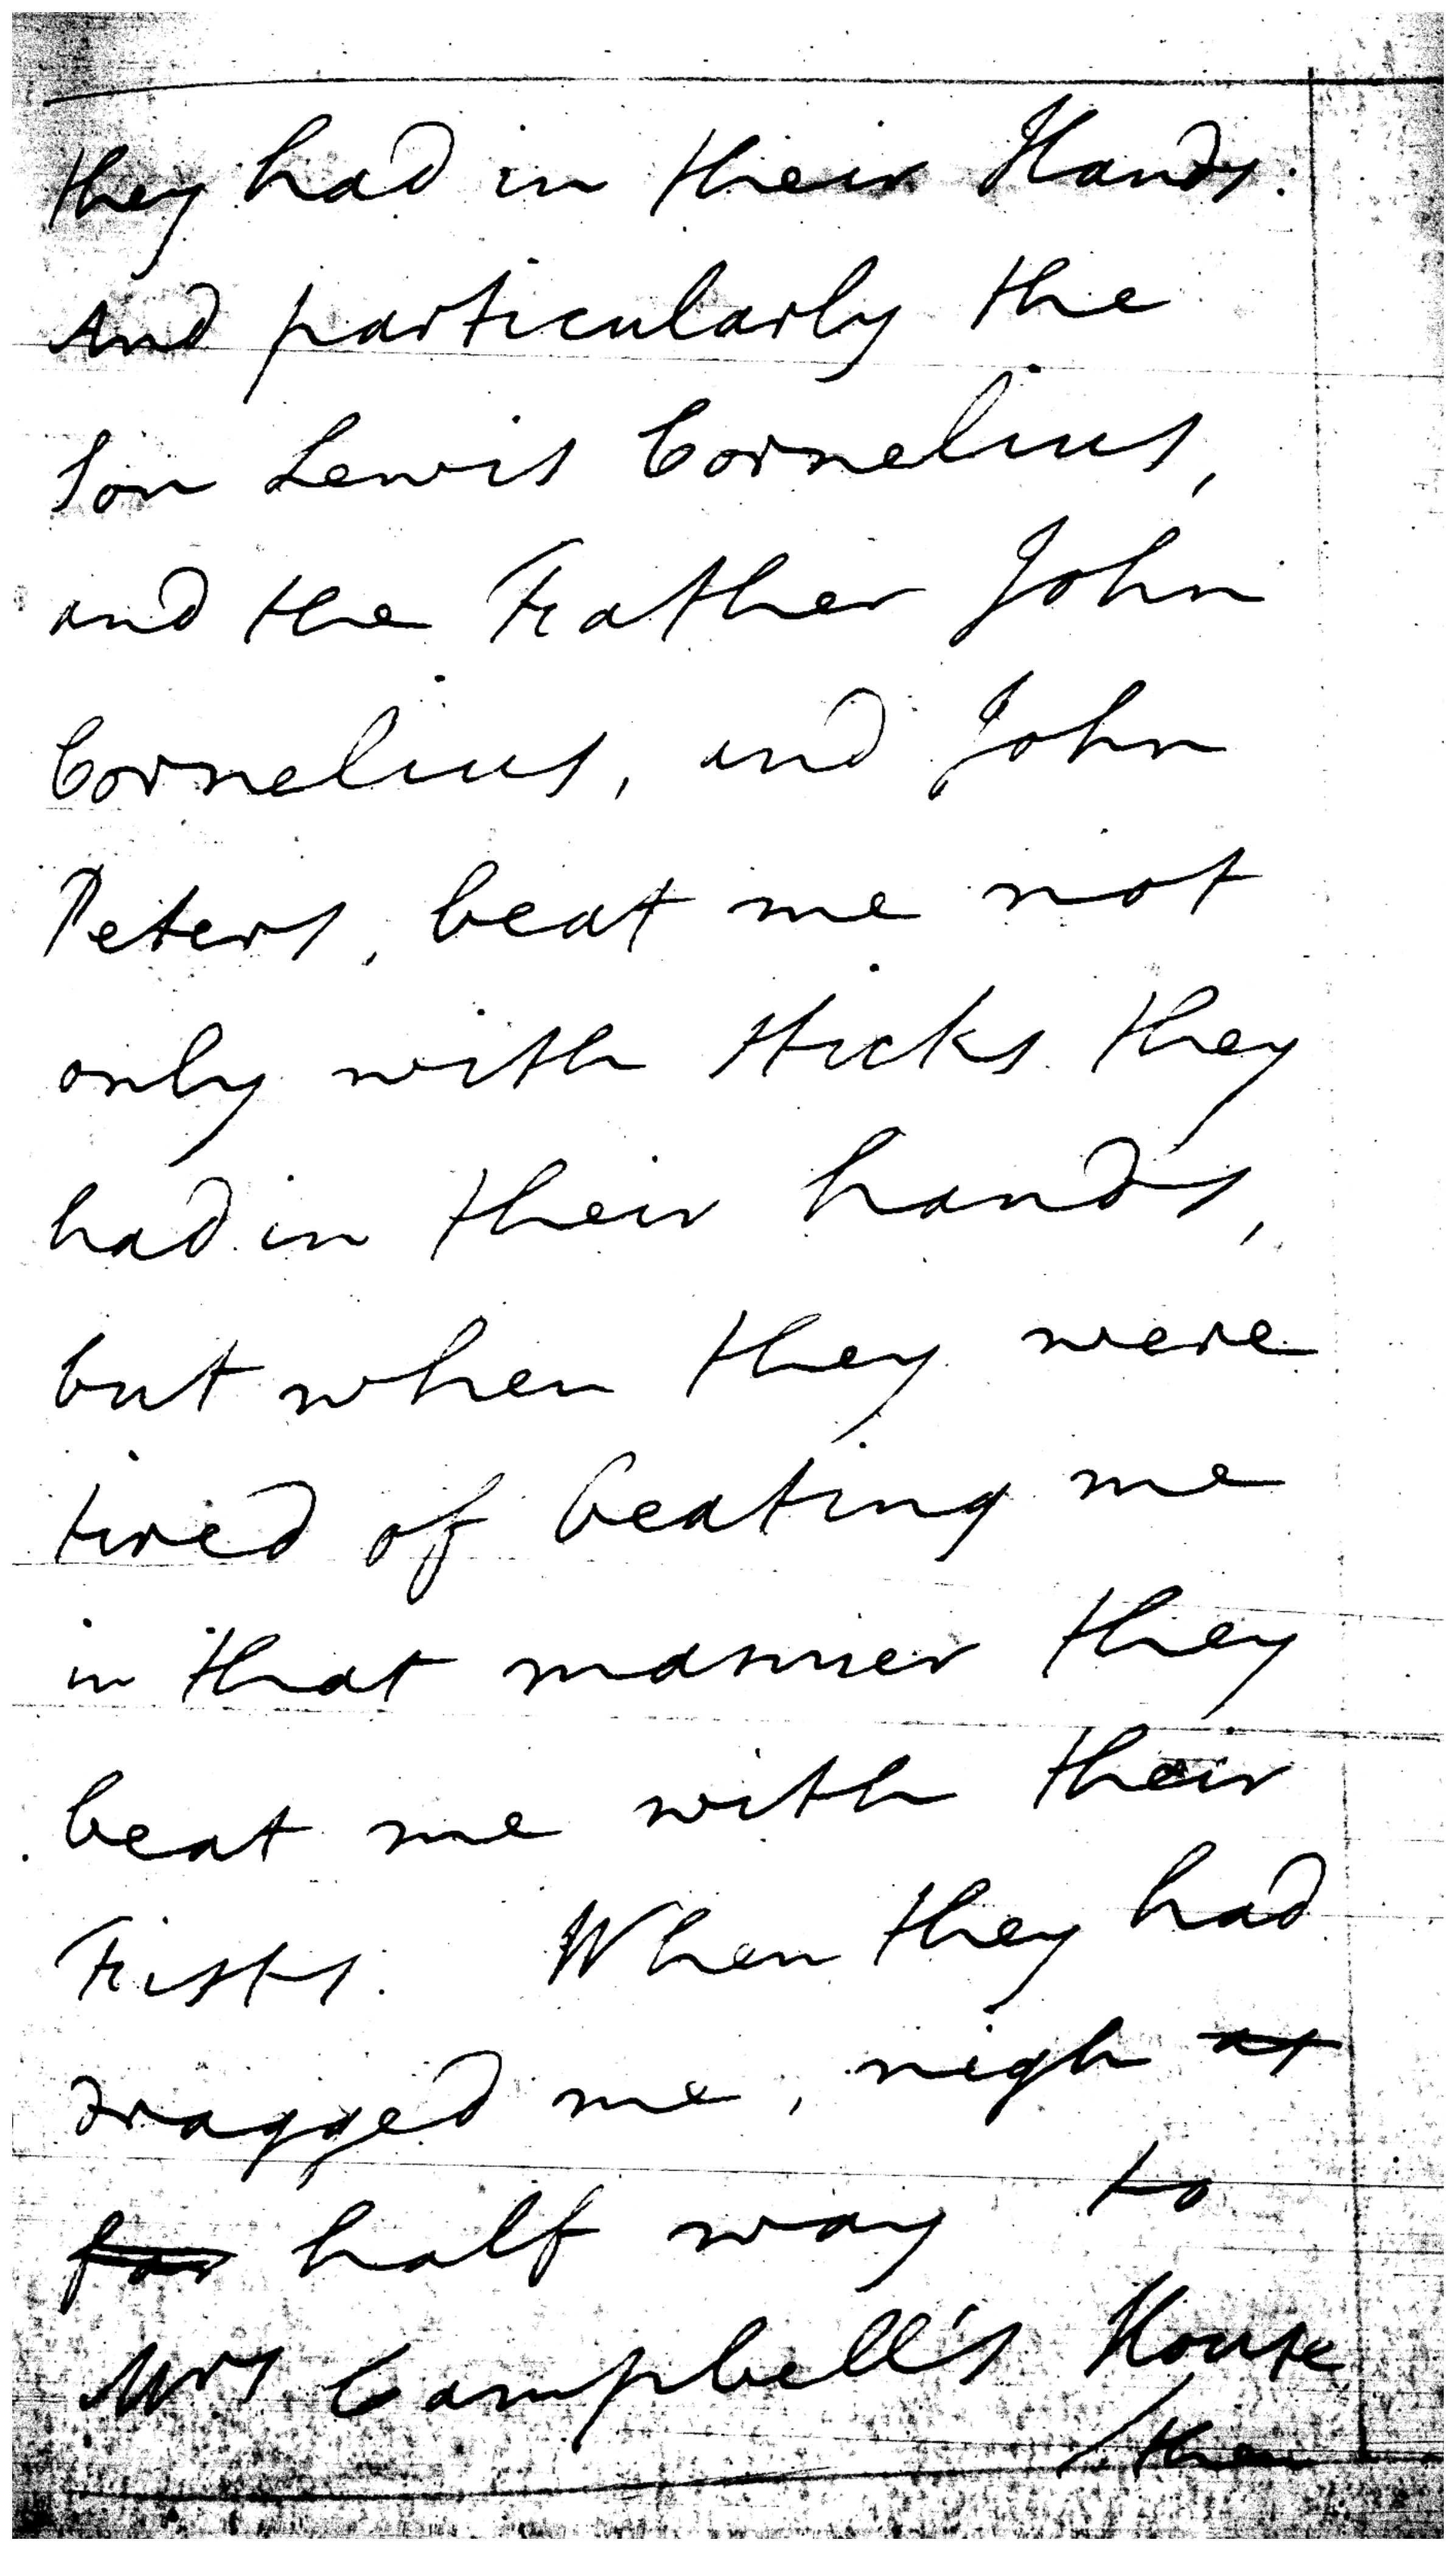 they had in their Hands:
And particularly the
Son Lewis Cornelius,
and the Father John
Cornelius, and John
Peters, beat me not
only with sticks they
had in their hands,
but when they were
tired of beating me
in that manner they
beat me with their
Fists. When they had
dragged me, nigh at
far half way to
Mrs Campbell's House
/then